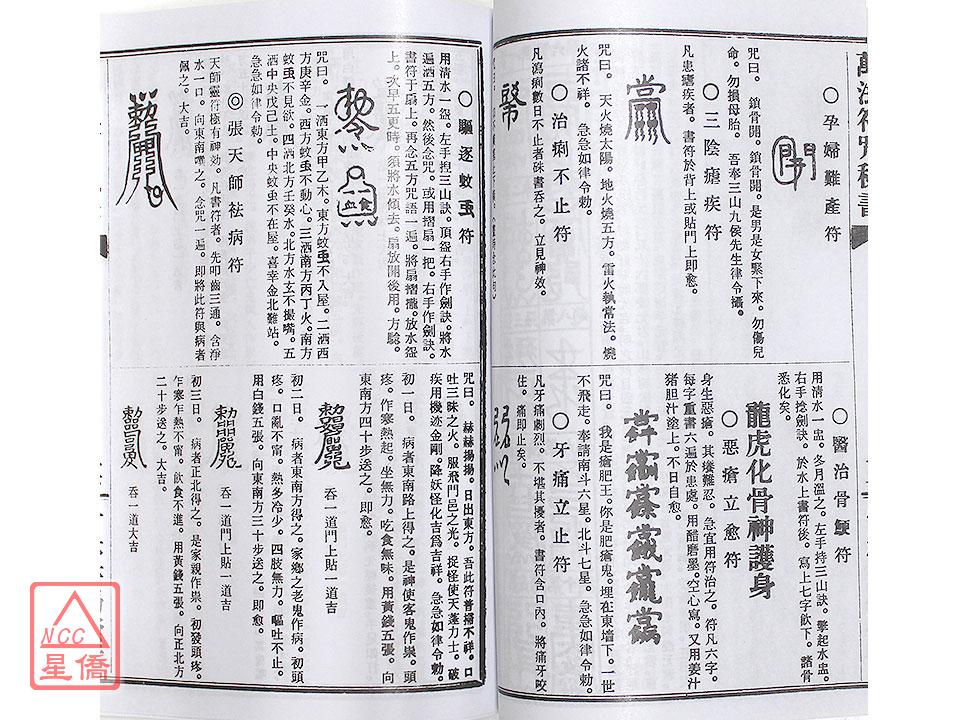 萬法符咒秘書
○孕婦難產符
咒曰。鎖骨開。鎖骨開。是男是女緊下來。勿傷兒
命。勿損母胎。吾奉三山九侯先生律令攝。
○三陰瘧疾符
凡患瘧疾者。書符於背上或貼門上即愈。
咒曰。天火燒太陽。地火燒五方。雷火執常法。燒
火諸不祥。急急如律令勅。
○治痢不止符
凡瀉痢數日不止者硃書吞之。立見神效。
○醫治骨鯁符
用清水一盅。冬月溫之。左手持三山訣。擎起水盅。
右手捻劍訣。於水上書符後。寫上七字飲下。諸骨
悉化矣。
龍虎化骨神護身
○惡瘡立愈符
身生惡瘡。其癢難忍。急宜用符治之。符凡六字。
每字重書六遍於患處。用醋磨墨。空心寫。又用姜汁
猪胆汁塗上。不日自愈。
咒曰。我是瘡肥王。你是肥瘡鬼。埋在東墻下。一世
不飛走。奉請南斗六星。北斗七星。急急如律令勅。
○牙痛立止符
凡牙痛劇烈。不堪其擾者。書符含口內。將痛牙咬
住。痛即止矣。
○驅逐蚊虫符
用清水一盌。左手担三山訣。頂盌右手作劍訣。將水
遍洒五方。然後念咒。或用摺扇一把。右手作劍訣。
書符于扇上。再念五方咒語一遍。將扇摺攏。放水盌
上。次早五更時。須將水傾去。扇放開後用。方騐。
咒曰。一洒東方甲乙木。東方蚊虽不入屋。二洒西
方庚辛金。西方蚊虽不動心。三洒南方丙丁火。南方
蚊虽不見欲。四洒北方壬癸水。北方水玄不撮嘴。五
洒中央戊己土。中央蚊虽不在屋。喜幸金北難站。
急急如律令勅。
◎張天師祛病符
天師靈符極有神効。凡書符者。先叩齒三通。含淨
水一口。向東南噀之。念咒一遍。即將此符與病者
佩之。大吉。
咒曰。赫赫揚揚。日出東方。吾此符普掃不祥。口
吐三昧之火。服飛門邑之光。捉怪使天蓬力士。破
疾用機迹金剛。降妖怪化吉爲吉祥。急急如律令勅。
初一日。病者東南路上得之。是神使客鬼作祟。頭
疼。作寒熱起。坐無力。吃食無味。用黃錢五張。向
東南方四十步送之。即愈。
吞一道門上貼一道吉
初二日。病者東南方得之。家鄉之老鬼作病。初頭
疼。口亂不甯。熱多冷少。四肢無力。嘔吐不止。
用白錢五張。向東南方三十步送之。即愈。
吞一道門上貼一道吉
初三日。病者正北得之。是家親作祟。初發頭疼。
乍寒乍熱不甯。飲食不進。用黃錢五張。向正北方
二十步送之。大吉。
吞一道大吉
NCC
星僑